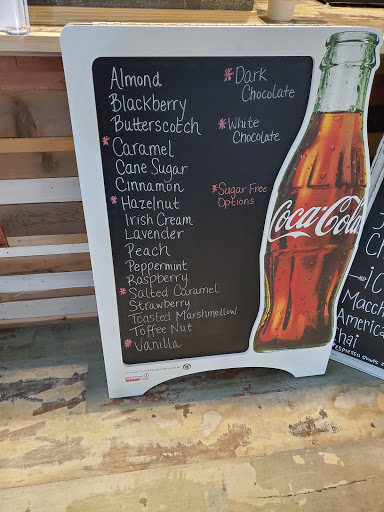 Almond
Blackberry
Butterscotch
* Caramel
Cane Sugar
Cinnamon
* Hazelnut
Irish Cream
Lavender
Peach
Peppermint
Raspberry
* Salted Caramel
Strawberry
Toasted Marshmellow
Toffee Nut
* Vanilla
* Dark
Chocolate
* White
Chocolate
* Sugar Free
Options
Coca-Cola
Macch
America
Thai